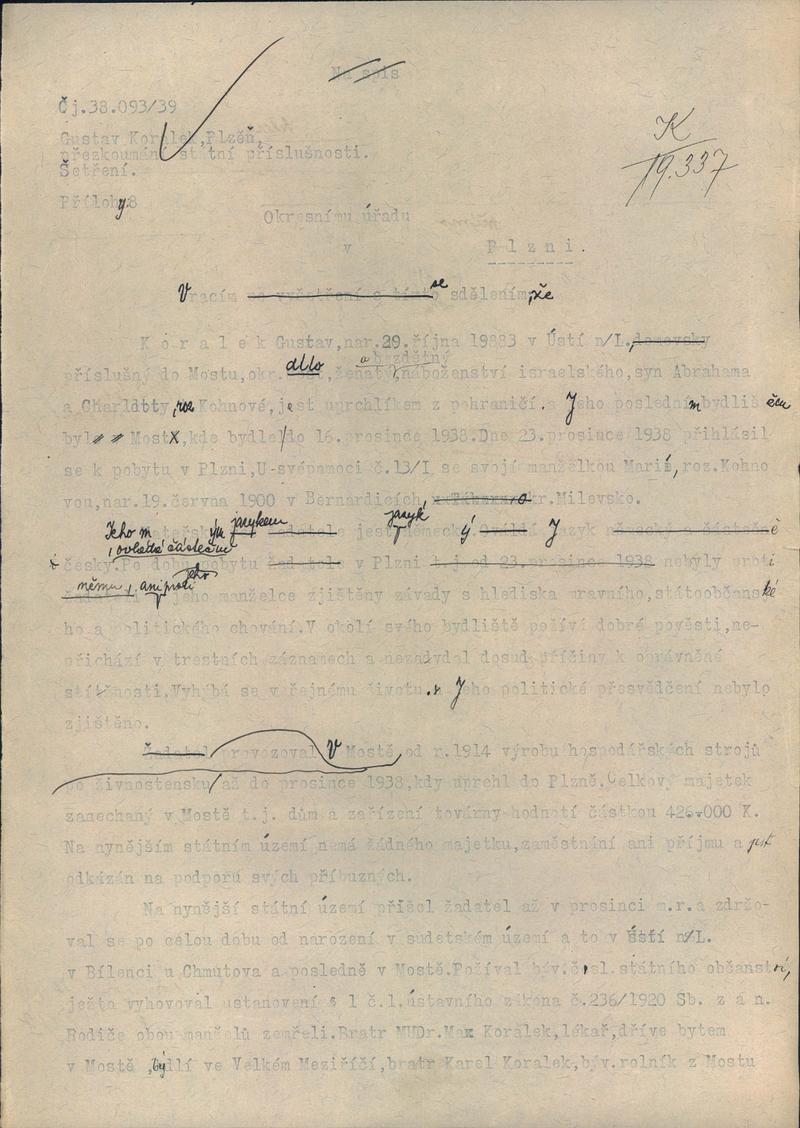 Na spis
Čj.38.093/39
K
19.337
Gustav Koralek,Plzeň,
přezkoumání státní příslušnosti.
Šetření.
Přílohy:8
Okresnímu úřadu
v Plzni.
Vracím se sdělením,že
K o r a l e k Gustav,nar.29.října 19883 v Ústí n/L.,
příslušný do Mostu,okr. dtto, ženatý a bezdětný, náboženství israelského,syn Abrahama
a Charlotty,roz Kohnové,jest uprchlíkem z pohraničí. Jeho posledním bydliš ěm
byl Most,kde bydlel do 16.prosince 1938.Dne 23.prosince 1938 přihlásil
se k pobytu v Plzni,U svépomoci č.13/I se svojí manželkou Marií,roz.Kohno
vou,nar.19.června 1900 v Bernardicích, okr.Milevsko.
Jeho mateřským jazykem jest německý jazyk
, ovládá částečně
česky.Po dobu pobytu žadatele v Plzni t.j od 23.prosince 1938 nebyly proti
němu, ani proti jeho manželce zjištěny závady s hlediska mravního,státoobčanské
ho a politického chování.V okolí svého bydliště požívá dobré pověsti,ne-
přichází v trestních záznamech a nezavdal dosud příčiny k oprávněné
stížnosti.Vyhýbá se veřejnému životu. Jeho politické přesvědčení nebylo
zjištěno.
Žadatel provozoval V Mostě od r.1914 výrobu hospodářských strojů
po živnostensku až do prosince 1938,kdy uprchl do Plzně.Celkový majetek
zanechaný v Mostě t.j. dům a zařízení továrny hodnotí částkou 426.000 K.
Na nynějším státním území nemá žádného majetku,zaměstnání ani příjmu a jest
odkázán na podporu svých příbuzných.
Na nynější státní území přišel žadatel až v prosinci m.r.a zdržo-
val se po celou dobu od narození v sudetském území a to v Ústí n/L.
v Bílenci u Chmutova a posledně v Mostě.Požíval býv.čsl.státního občanství,
ježto vyhovoval ustanovení § 1 č.1.ústavního zákona č.236/1920 Sb. z a n.
Rodiče obou manželů zemřeli.Bratr MUDr.Max Koralek,lékař,dříve bytem
v Mostě ,bydlí ve Velkém Meziříčí,bratr Karel Koralek,býv.rolník z Mostu